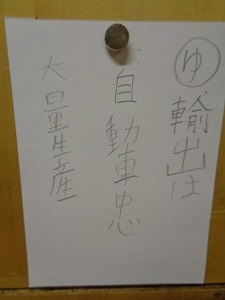 ゆ 輸出は
自動車忠
大量生産